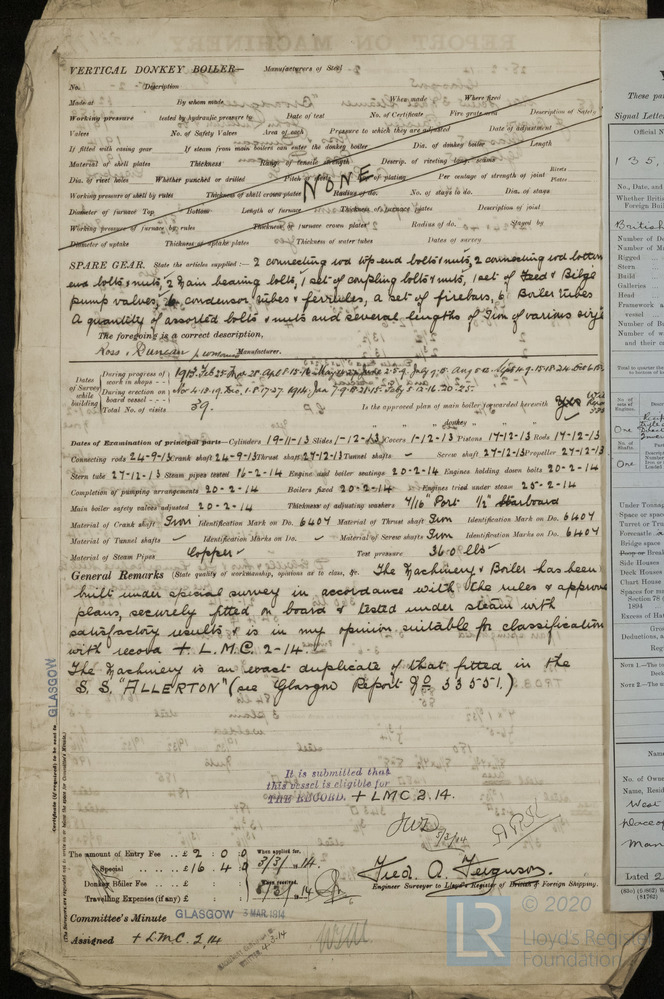 VERTICAL DONKEY BOILER— Manufacturers of Steel
No. Description
Made at By whom made When made Where fixed
Working pressure tested by hydraulic pressure to Date of test No. of Certificate Fire grate area Description of Safety
Valves No. of Safety Valves Area of each Pressure to which they are adjusted Date of adjustment
If fitted with easing gear If steam from main boilers can enter the donkey boiler Dia. of donkey boiler Length
Material of shell plates Thickness Range of tensile strength Descrip. of riveting long. seams
Dia. of rivet holes Whether punched or drilled Pitch of rivets Lap of plating Per centage of strength of joint Rivets Plates
NONE
Working pressure of shell by rules Thickness of shell crown plates Radius of do. No. of stays to do. Dia. of stays
Diameter of furnace Top Bottom Length of furnace Thickness of furnace plates Description of joint
Working pressure of furnace by rules Thickness of furnace crown plates Radius of do. Stayed by
Diameter of uptake Thickness of uptake plates Thickness of water tubes Dates of survey
SPARE GEAR. State the articles supplied:— 2 connecting rod top end bolts & nuts, 2 connecting rod bottom
end bolts & nuts, 2 Main bearing bolts, 1 set of coupling bolts & nuts, 1 set of Feed & Bilge
pump valves, condenser tubes & ferrules, a set of firebars, 6 Boiler tubes
A quantity of assorted bolts & nuts and several lengths of Iron of various sizes
The foregoing is a correct description,
Ross & Duncan Manufacturer.
Dates of Survey while building
During progress of work in shops - -
During erection on board vessel - - -
Total No. of visits 39. Is the approved plan of main boiler forwarded herewith Yes
" " " donkey " " "
Dates of Examination of principal parts—Cylinders 19-11-13 Slides 1-12-13 Covers 1-12-13 Pistons 17-12-13 Rods 17-12-13
Connecting rods 24-9-13 Crank shaft 24-9-13 Thrust shaft 27-12-13 Tunnel shafts — Screw shaft 27-12-13 Propeller 27-12-13
Stern tube 27-12-13 Steam pipes tested 16-2-14 Engine and boiler seatings 20-2-14 Engines holding down bolts 20-2-14
Completion of pumping arrangements 20-2-14 Boilers fixed 20-2-14 Engines tried under steam 25-2-14
Main boiler safety valves adjusted 20-2-14 Thickness of adjusting washers 7/16" Port 1/2" Starboard
Material of Crank shaft Iron Identification Mark on Do. 6407 Material of Thrust shaft Iron Identification Mark on Do. 6407
Material of Tunnel shafts — Identification Marks on Do. — Material of Screw shafts Iron Identification Marks on Do. 6407
Material of Steam Pipes Copper Test pressure 360 lbs
General Remarks (State quality of workmanship, opinions as to class, &c. The Machinery & Boiler has been
built under special survey in accordance with the rules & approved
plans, securely fitted on board & tested under steam with
satisfactory results & is in my opinion suitable for classification
with record + L.M.C. 2-14.
The Machinery is an exact duplicate of that fitted in the
S.S. "ALLERTON" (see Glasgow Report No 33551.)
GLASGOW
It is submitted that
this vessel is eligible for
THE RECORD. + LMC 2.14.
3/3/14
The amount of Entry Fee .. £ 2 : 0 : 0 When applied for,
Special .. £ 16 : 4 : 0 3/3/14.
Donkey Boiler Fee .. £ : : When received,
Travelling Expenses (if any) £ : :
Fred. A. Ferguson.
Engineer Surveyor to Lloyd's Register of British & Foreign Shipping.
Committee's Minute GLASGOW 3 MAR. 1914
Assigned + L.M.C. 2,14
© 2020
LR
Lloyd's Register
Foundation
These par
Signal Letter
Official N
135,
No., Date, and
Whether Briti
Foreign Buil
British
Number of De
Number of Ma
Rigged
Stern
Build
Galleries
Head
Framework a
vessel
Number of Bu
Number of w
and their
One
One
Under Tonnag
Space or space
Turret or Tru
Forecastle
Bridge space
Poop or Break
Side Houses
Deck Houses
Chart House
Spaces for ma
Section 78 (
1894
Excess of Hat
Gros
Deductions, a
Reg
NOTE 1.—The
Deck
NOTE 2.—The
Name
No. of Owne
Name, Resid
West
place of
Man
Dated 2